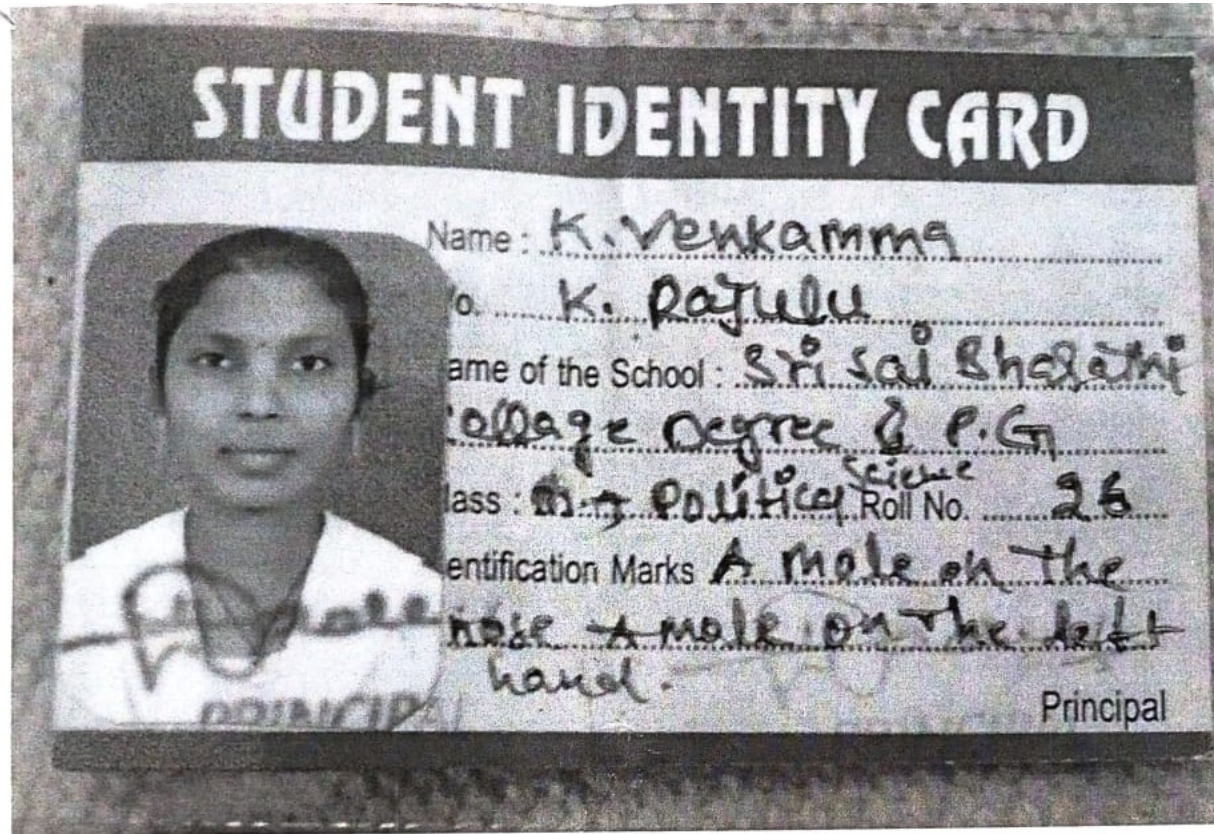 STUDENT IDENTITY CARD
Name : K. Venkamma
/o. K. Rajulu
ame of the School : Sri Sai Bharathi
collage Degree & P.G
lass : M.A Political Science Roll No. 26
entification Marks A mole on the
nose A mole on the left
hand.
PRINCIPAL
Principal